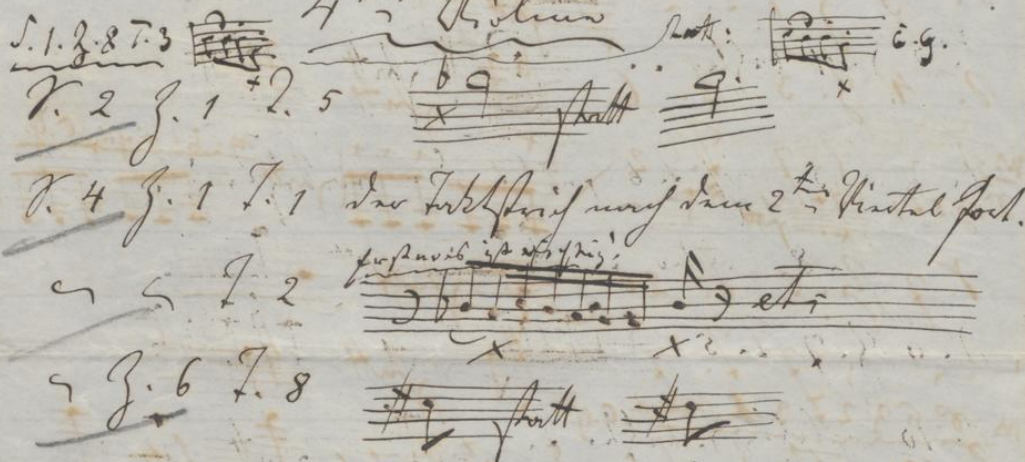 4te Violine
S. 1. Z. 8 T. 3 statt:
S. 2 Z. 1 T. 5 statt
S. 4 Z. 1 T. 1 der Taktstrich nach dem 2ten Viertel fort.
T. 2 etc
Z. 6 T. 8 statt